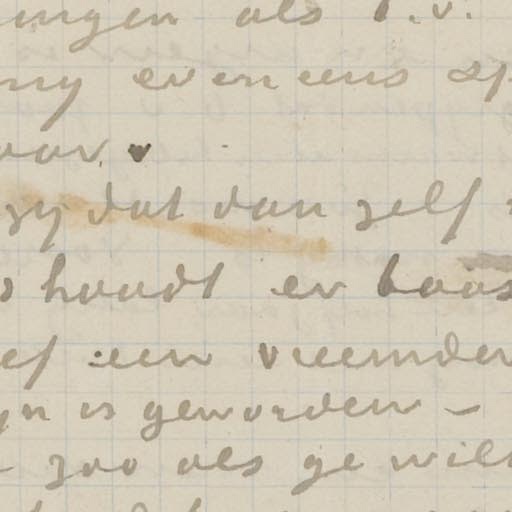 ingen als T.V.
ny eveneens sp
oor.
zij dat dan zelf
houdt er baas
ef een vreemder
yn is geworden –
zoo als ge wilt